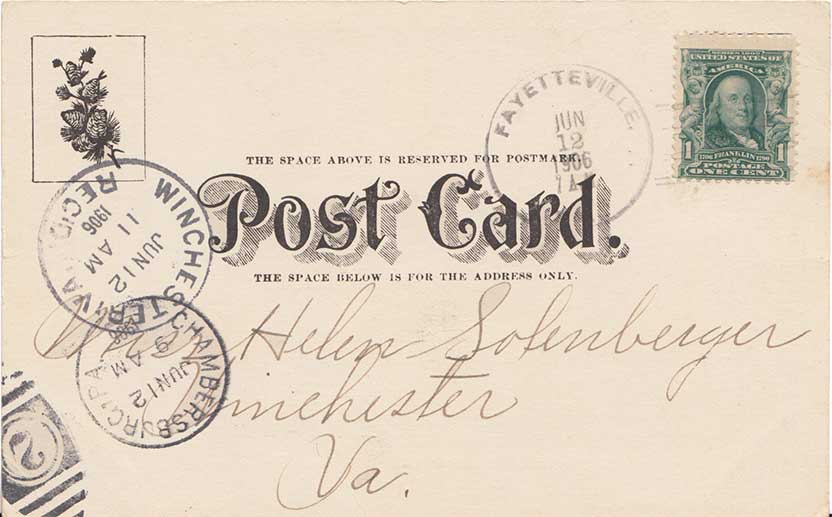 SERIES 1902
UNITED STATES OF
AMERICA
1 1
1706 FRANKLIN 1790
POSTAGE
ONE CENT
FAYETTEVILLE,
JUN
12
1906
THE SPACE ABOVE IS RESERVED FOR POSTMARK.
Post Card.
THE SPACE BELOW IS FOR THE ADDRESS ONLY.
WINCHESTER VA.
REC'D
1906
11 AM
JUN 12
CHAMBERSBURG, PA
1906
9 AM
JUN 12
2
Miss Helen Solenberger
Winchester
Va.